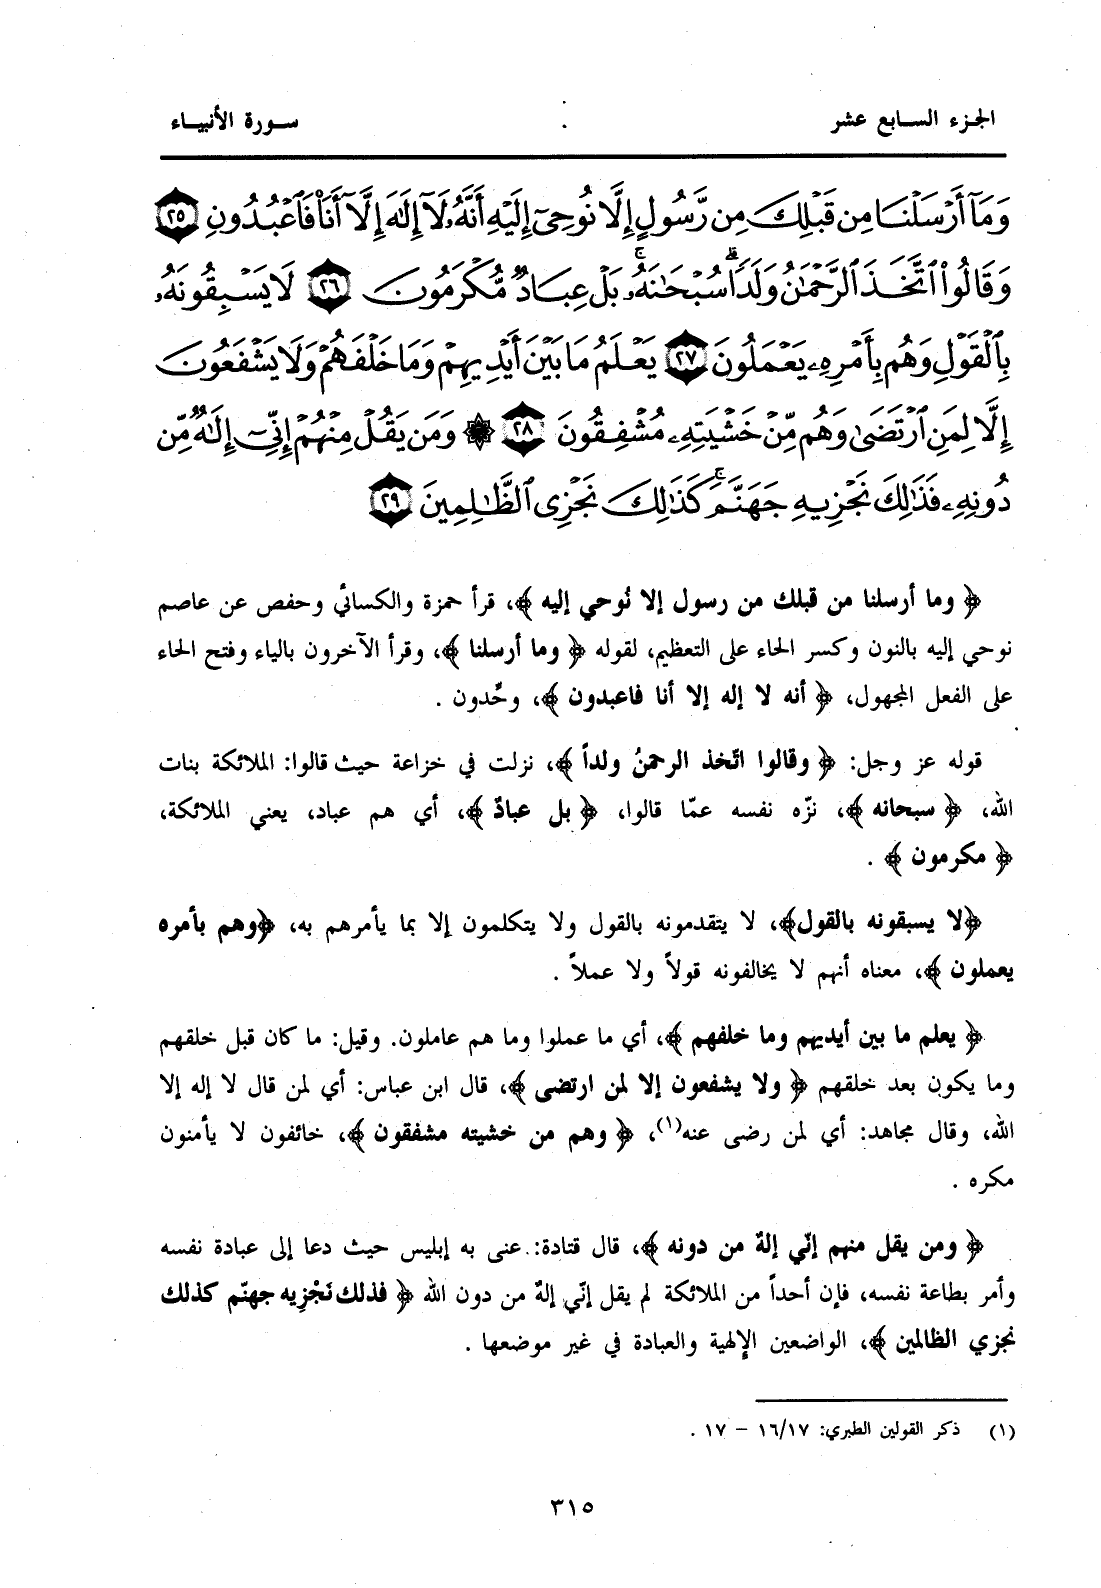 الجزء السابع عشر
سورة الأنبياء
وَمَآ أَرْسَلْنَا مِن قَبْلِكَ مِن رَّسُولٍ إِلَّا نُوحِىٓ إِلَيْهِ أَنَّهُۥ لَآ إِلَٰهَ إِلَّآ أَنَا۠ فَٱعْبُدُونِ ٢٥
وَقَالُوا۟ ٱتَّخَذَ ٱلرَّحْمَٰنُ وَلَدًا ۗ سُبْحَٰنَهُۥ ۚ بَلْ عِبَادٌ مُّكْرَمُونَ ٢٦ لَا يَسْبِقُونَهُۥ
بِٱلْقَوْلِ وَهُم بِأَمْرِهِۦ يَعْمَلُونَ ٢٧ يَعْلَمُ مَا بَيْنَ أَيْدِيهِمْ وَمَا خَلْفَهُمْ وَلَا يَشْفَعُونَ
إِلَّا لِمَنِ ٱرْتَضَىٰ وَهُم مِّنْ خَشْيَتِهِۦ مُشْفِقُونَ ٢٨ ۞ وَمَن يَقُلْ مِنْهُمْ إِنِّىٓ إِلَٰهٌ مِّن
دُونِهِۦ فَذَٰلِكَ نَجْزِيهِ جَهَنَّمَ ۚ كَذَٰلِكَ نَجْزِى ٱلظَّٰلِمِينَ ٢٩
﴿ وما أرسلنا من قبلك من رسول إلا نُوحي إليه ﴾، قرأ حمزة والكسائي وحفص عن عاصم
نوحي إليه بالنون وكسر الحاء على التعظيم، لقوله ﴿ وما أرسلنا ﴾، وقرأ الآخرون بالياء وفتح الحاء
على الفعل المجهول، ﴿ أنه لا إله إلا أنا فاعبدون ﴾، وحِّدون .
قوله عز وجل: ﴿ وقالوا اتّخذ الرحمنُ ولداً ﴾، نزلت في خزاعة حيث قالوا: الملائكة بنات
الله، ﴿ سبحانه ﴾، نزّه نفسه عمّا قالوا، ﴿ بل عبادٌ ﴾، أي هم عباد، يعني الملائكة،
﴿ مكرمون ﴾ .
﴿لا يسبقونه بالقول﴾، لا يتقدمونه بالقول ولا يتكلمون إلا بما يأمرهم به، ﴿وهم بأمره
يعملون ﴾، معناه أنهم لا يخالفونه قولاً ولا عملاً .
﴿ يعلم ما بين أيديهم وما خلفهم ﴾، أي ما عملوا وما هم عاملون. وقيل: ما كان قبل خلقهم
وما يكون بعد خلقهم ﴿ ولا يشفعون إلا لمن ارتضى ﴾، قال ابن عباس: أي لمن قال لا إله إلا
الله، وقال مجاهد: أي لمن رضى عنه(١)، ﴿ وهم من خشيته مشفقون ﴾، خائفون لا يأمنون
مكره .
﴿ ومن يقل منهم إنّي إلهٌ من دونه ﴾، قال قتادة: عنى به إبليس حيث دعا إلى عبادة نفسه
وأمر بطاعة نفسه، فإن أحداً من الملائكة لم يقل إنّي إلهٌ من دون الله ﴿ فذلك نَجْزِيه جهنّم كذلك
نجزي الظالمين ﴾، الواضعين الإلهية والعبادة في غير موضعها .
(١) ذكر القولين الطبري: ١٦/١٧ - ١٧ .
٣١٥